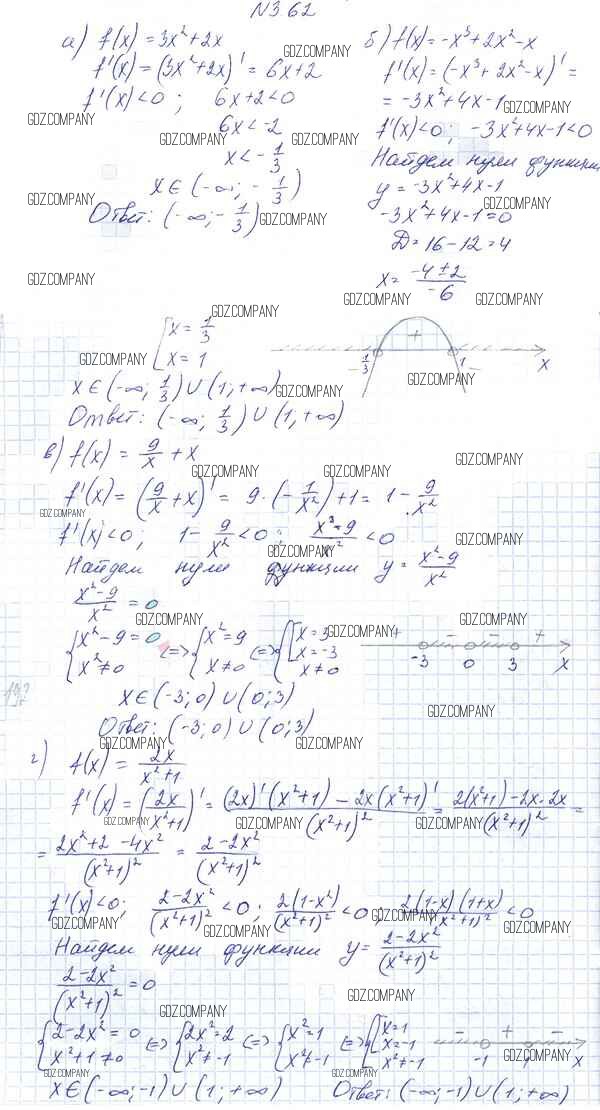 N362
а) f(x) = 3x²+2x
f'(x) = (3x²+2x)' = 6x+2
f'(x)<0; 6x+2<0
6x<-2
x<-1/3
x∈(-∞; -1/3)
Ответ: (-∞; -1/3)
б) f(x) = -x³+2x²-x
f'(x) = (-x³+2x²-x)' =
= -3x²+4x-1
f'(x)<0; -3x²+4x-1<0
Найдем нули функции
y = -3x²+4x-1
-3x²+4x-1=0
D = 16-12=4
x = (-4±2)/(-6)
[x = 1/3
[x = 1
+
1/3 1 x
x∈(-∞; 1/3)∪(1; +∞)
Ответ: (-∞; 1/3)∪(1; +∞)
в) f(x) = 9/x + x
f'(x) = (9/x + x)' = 9·(-1/x²)+1 = 1 - 9/x²
f'(x)<0; 1 - 9/x² <0; (x²-9)/x² <0
Найдем нули функции y = (x²-9)/x²
(x²-9)/x² = 0
{x²-9=0 {x²=9 {[x=3
{x²≠0 <=> {x≠0 <=> {[x=-3
{x≠0
+ - - +
-3 0 3 x
x∈(-3; 0)∪(0; 3)
Ответ: (-3; 0)∪(0; 3)
г) f(x) = 2x/(x²+1)
f'(x) = (2x/(x²+1))' = ((2x)'(x²+1) - 2x(x²+1)')/(x²+1)² = (2(x²+1)-2x·2x)/(x²+1)² =
= (2x²+2-4x²)/(x²+1)² = (2-2x²)/(x²+1)²
f'(x)<0; (2-2x²)/(x²+1)² <0; 2(1-x²)/(x²+1)² <0; 2(1-x)(1+x)/(x²+1)² <0
Найдем нули функции y = (2-2x²)/(x²+1)²
(2-2x²)/(x²+1)² = 0
{2-2x²=0 {2x²=2 {x²=1 {[x=1
{x²+1≠0 <=> {x²≠-1 <=> {x²≠-1 <=> {[x=-1
{x²≠-1
- + -
-1 1 x
x∈(-∞; -1)∪(1; +∞) Ответ: (-∞; -1)∪(1; +∞)
GDZ.COMPANY